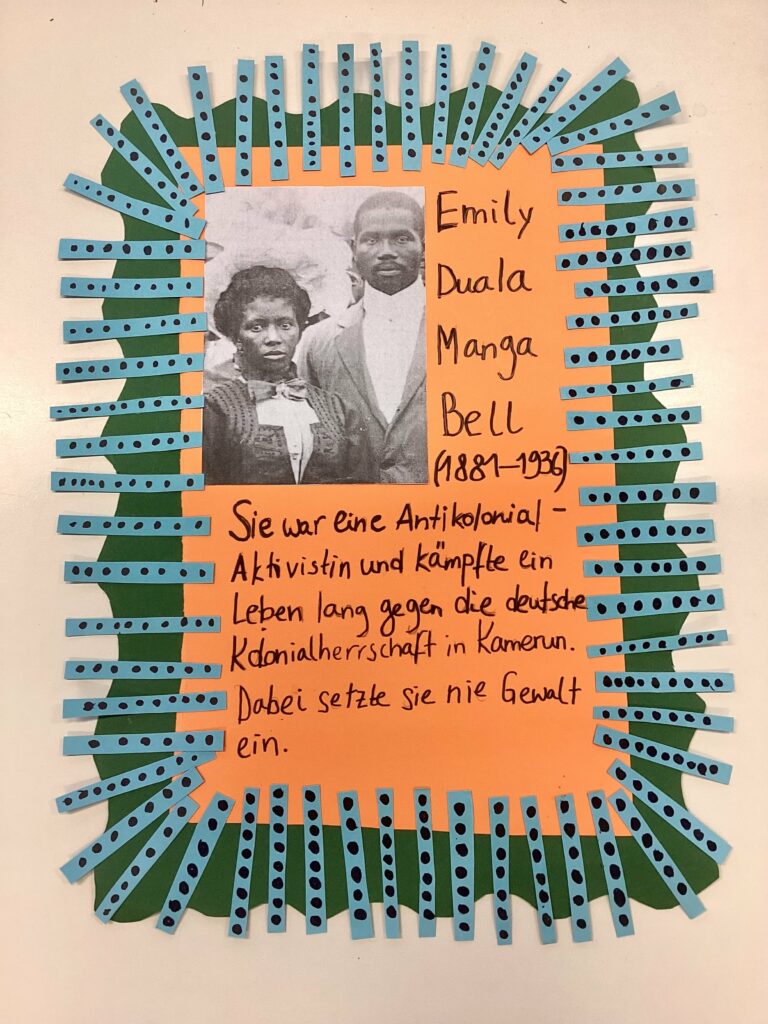 Emily
Duala
Manga
Bell
(1881–1936)
Sie war eine Antikolonial-
Aktivistin und kämpfte ein
Leben lang gegen die deutsche
Kolonialherrschaft in Kamerun.
Dabei setzte sie nie Gewalt
ein.